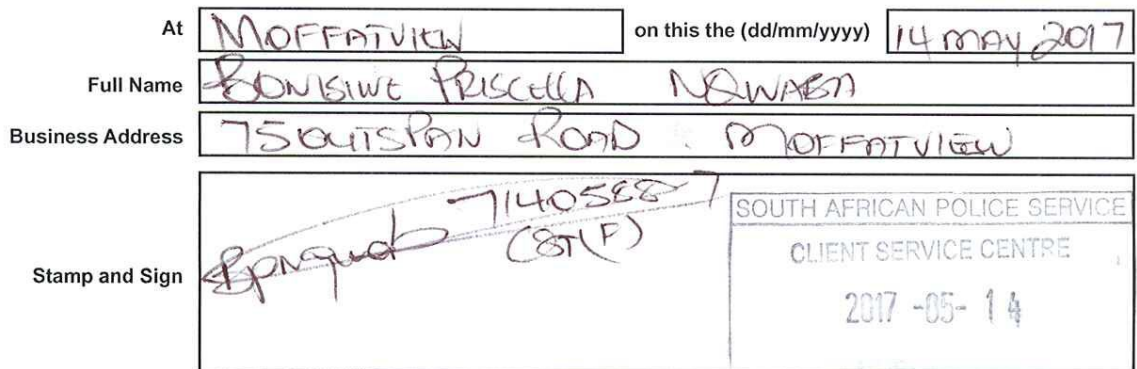 At MOFFATVIEW on this the (dd/mm/yyyy) 14 MAY 2017
Full Name BONISIWE PRISCELLA NQWABA
Business Address 75 OUTSPAN ROAD MOFFATVIEW
7140588-7
CST(F)
Stamp and Sign
SOUTH AFRICAN POLICE SERVICE
CLIENT SERVICE CENTRE
2017 -05- 14